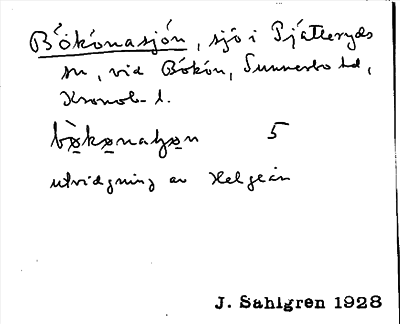 Bökönasjön, sjö i Pjätteryds
sn, vid Bökön, Sunnerbo hd,
Kronob. l.
bòkonaʃon 5
utvidgning av Helgeån
J. Sahlgren 1928